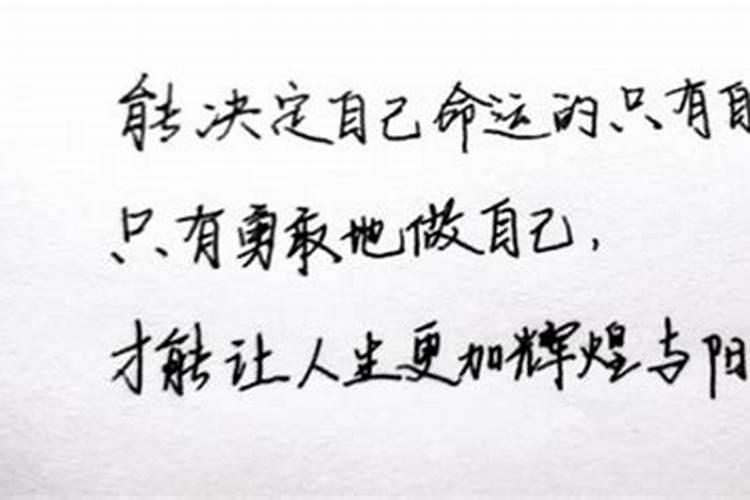 能决定自己命运的只有自
只有勇敢地做自己,
才能让人生更加辉煌与阳